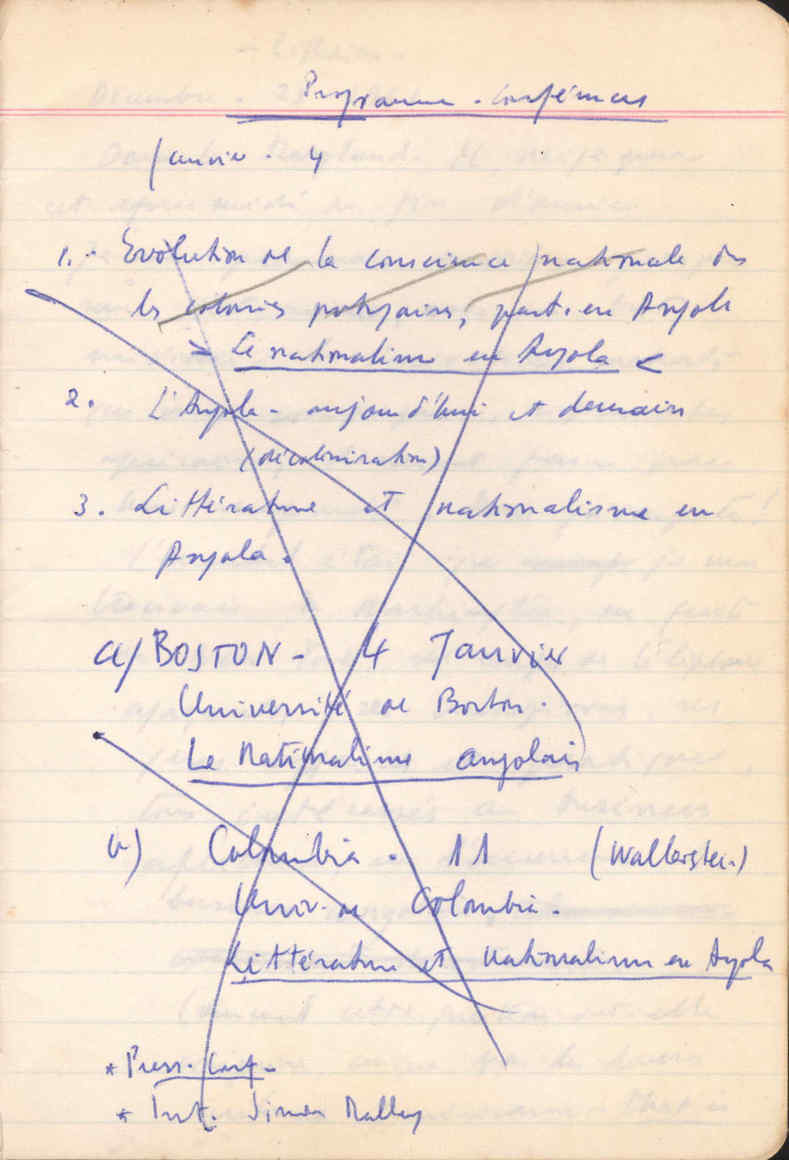 Programme - Conférences
Janvier - 4
1. - Evolution de la conscience nationale ds
les colonies portugaises, part. en Angola
> Le nationalisme en Angola <
2. L'Angola - aujourd'hui et demain
(décolonisation)
3. Littérature et nationalisme en
Angola.
a/ BOSTON - 4 Janvier
Université de Boston.
Le Nationalisme angolais
b) Columbia - 11 (Wallerstei.)
Univ. de Colombia.
Littérature et nationalisme en Angola
* Press. Conf.
* Int. Simon Malley